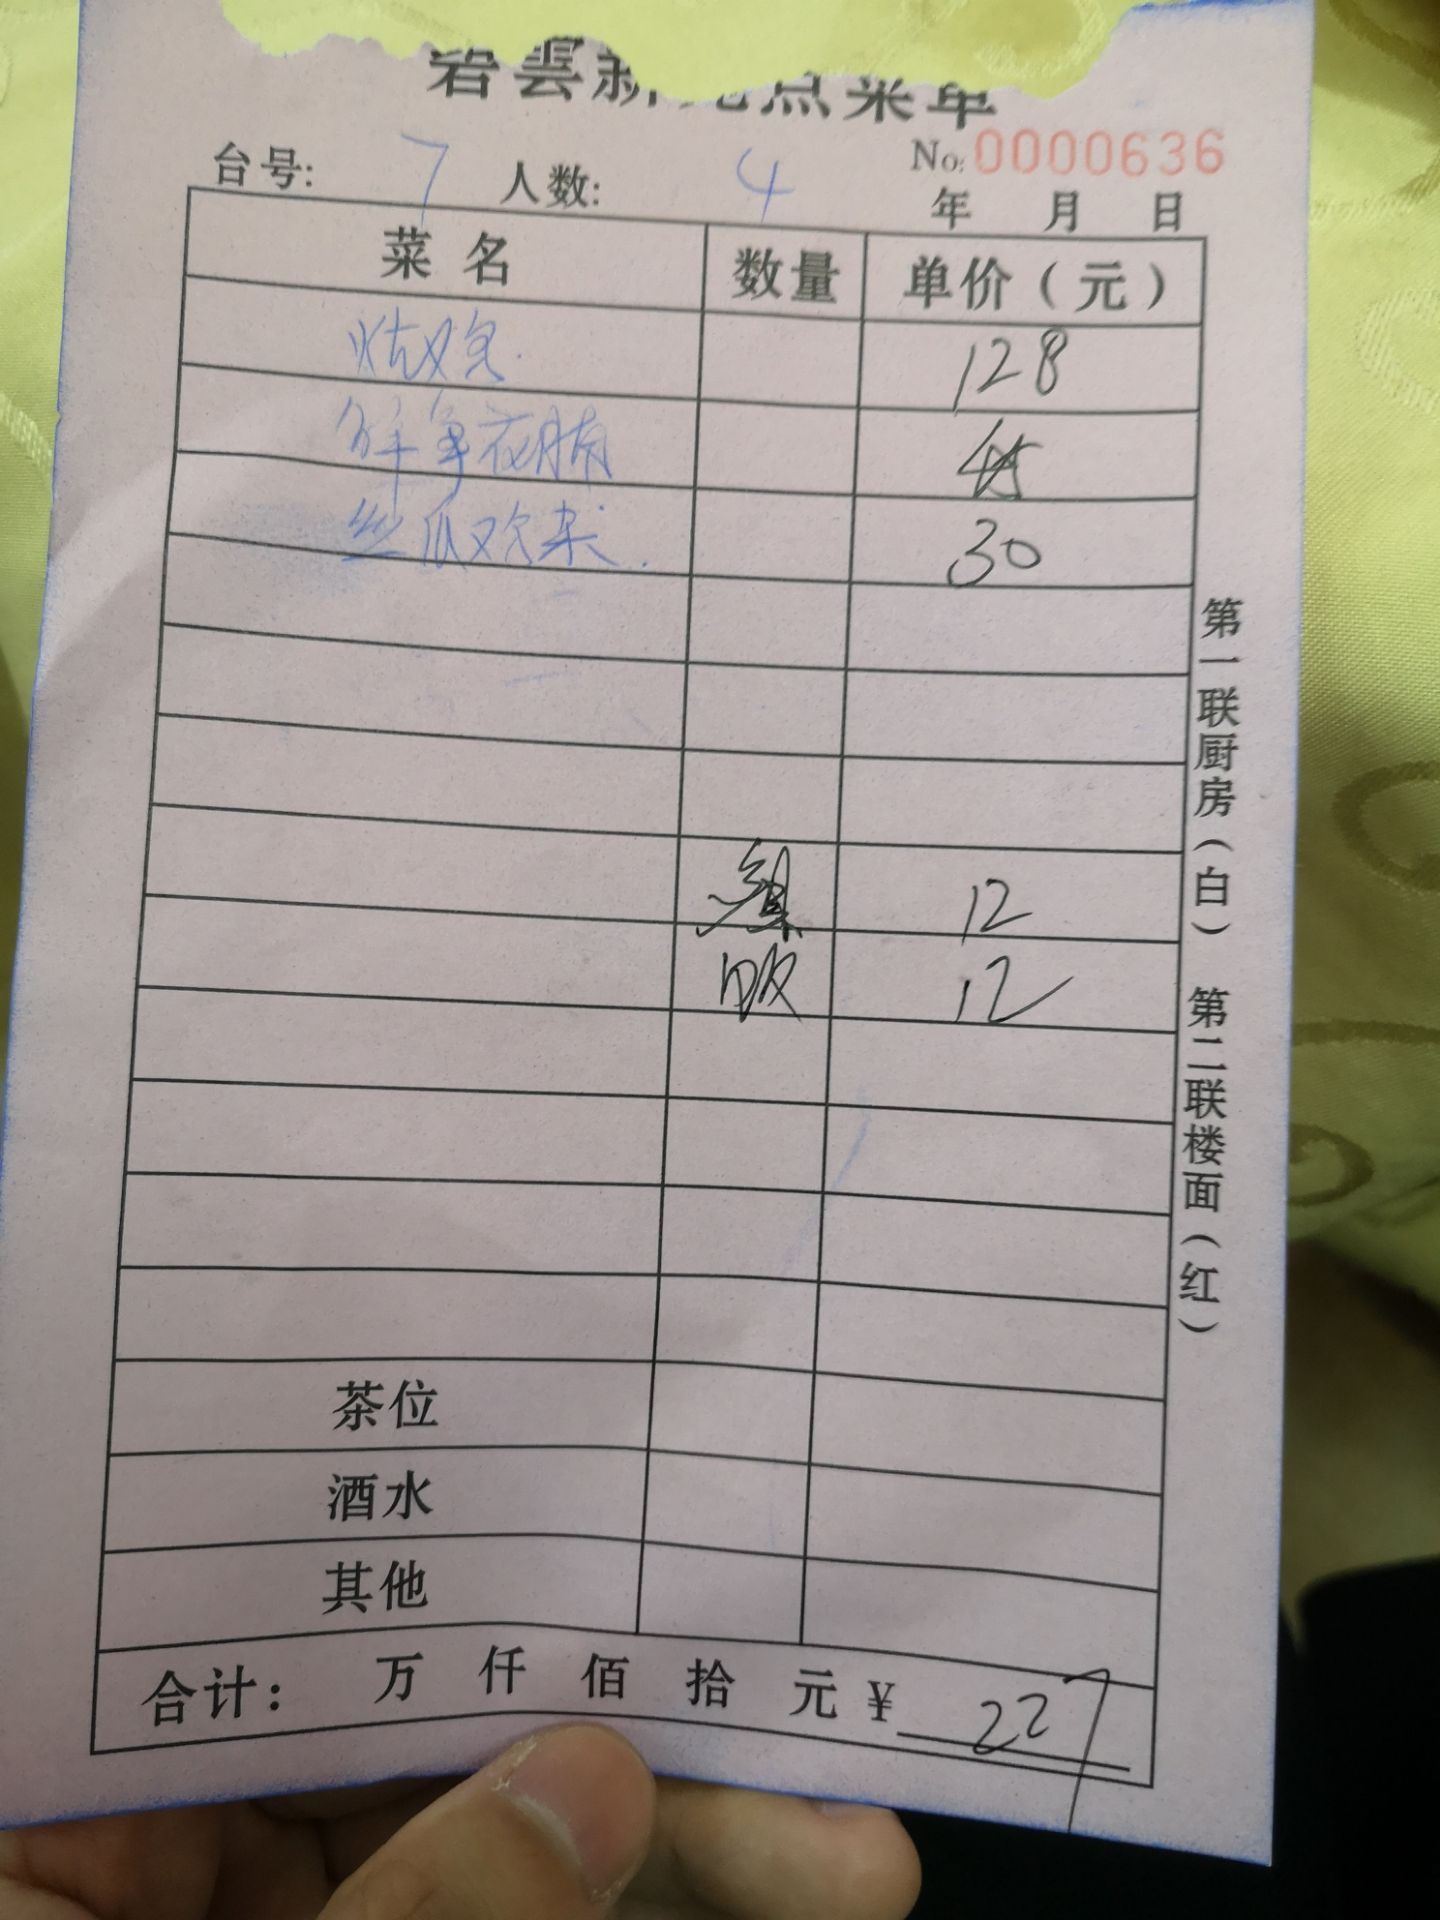 点菜单
台号: 7 人数: 4 No: 0000636
年 月 日
菜名 数量 单价（元）
128
45
丝瓜 30
12
饭 12
茶位
酒水
其他
合计: 万 仟 佰 拾 元 ¥ 227
第一联厨房（白） 第二联楼面（红）